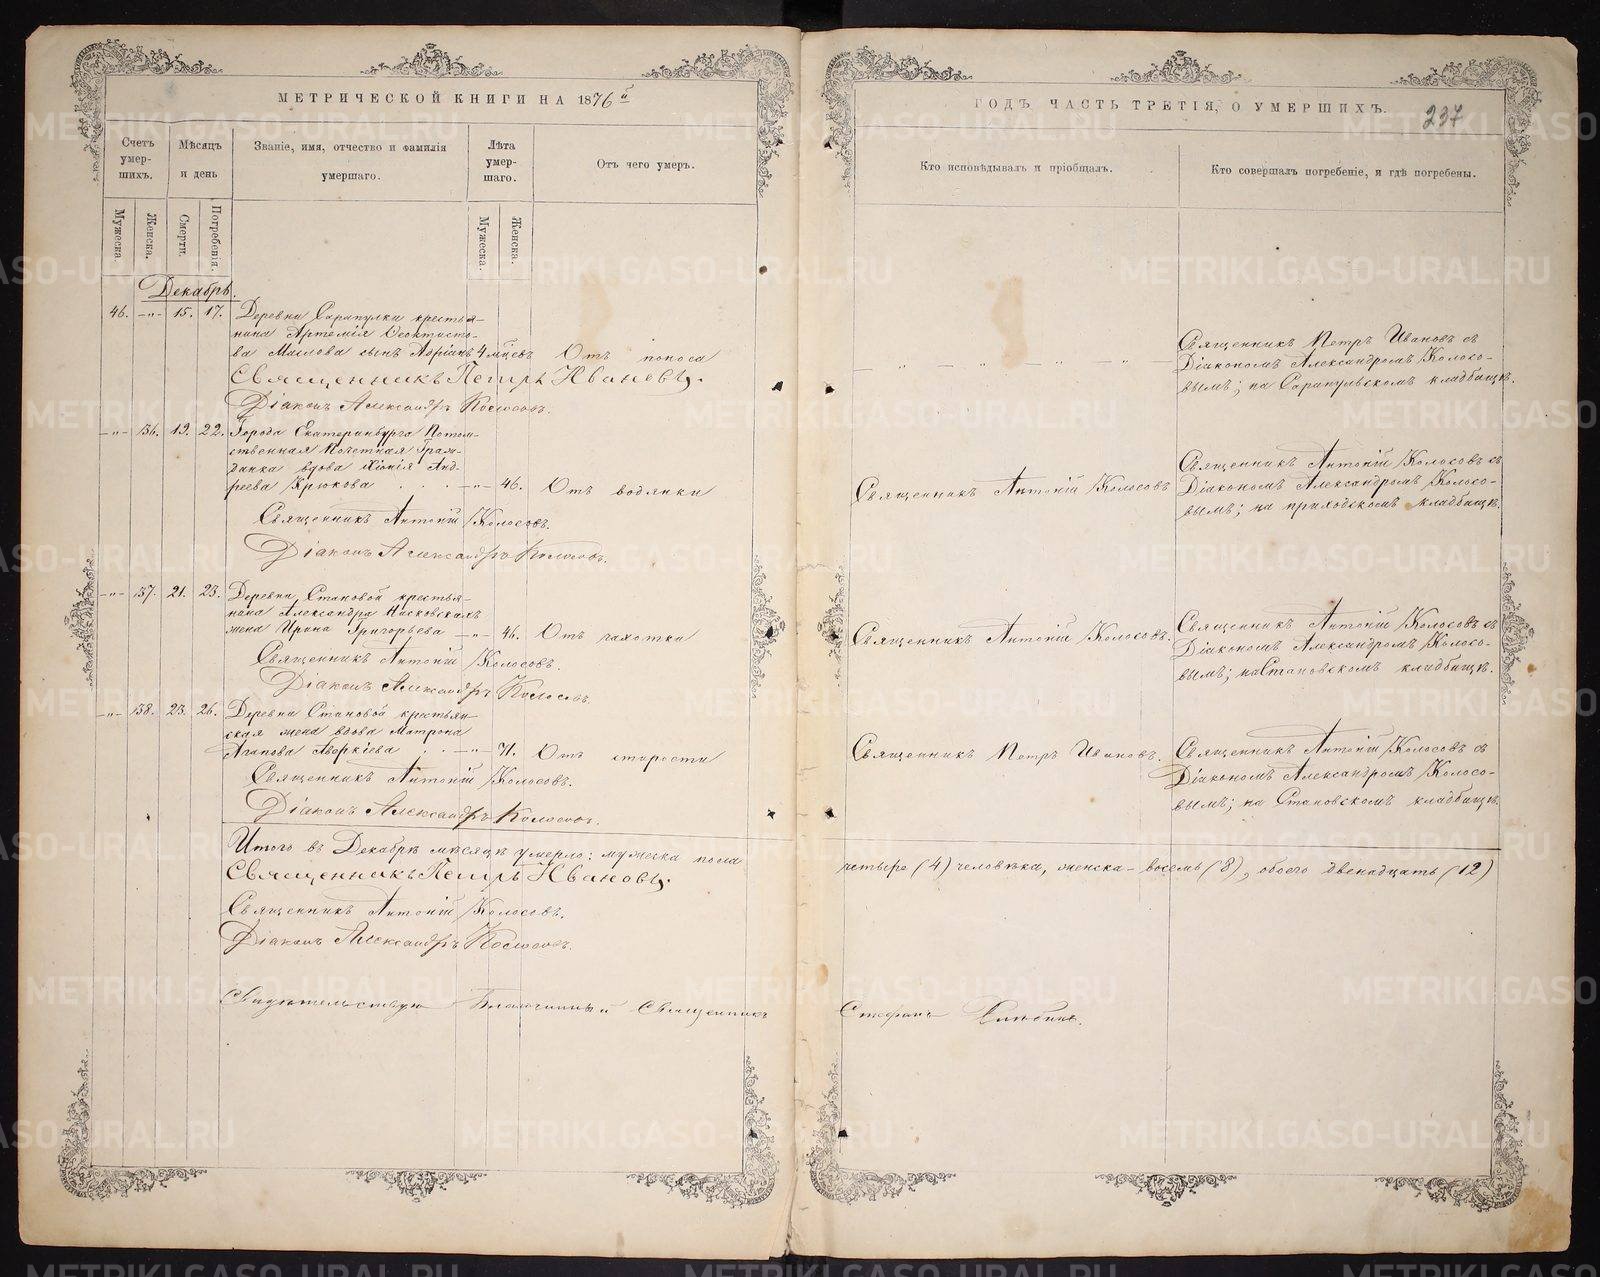 МЕТРИЧЕСКОЙ КНИГИ НА 1876й
Счетъ умер-шихъ.
Мѣсяцъ и день
Званіе, имя, отчество и фамилія умершаго.
Лѣта умер-шаго.
Отъ чего умеръ.
Мужеска.
Женска.
Смерти.
Погребенія.
Мужеска.
Женска.
Декабрь.
46. -„- 15. 17. Деревни Сарапулки крестья-
нина Артемія Ѳеоктисто-
ва Маслова сынъ Адріанъ 4 мѣцевъ Отъ поноса
Священникъ Петръ Ивановъ.
Діаконъ Александръ Колосовъ.
-„- 136. 19. 22. Города Екатеринбурга Потом-
ственная Почетная Граж-
данка вдова Хіонія Анд-
реева Крюкова . . . -„- 46. Отъ водянки
Священникъ Антоній Колосовъ.
Діаконъ Александръ Колосовъ.
-„- 137. 21. 23. Деревни Становой крестья-
нина Александра
жена Ирина Григорьева -„- 46. Отъ чахотки
Священникъ Антоній Колосовъ.
Діаконъ Александръ Колосовъ.
-„- 138. 23. 26. Деревни Становой крестьян-
ская жена вдова Матрона
Агапова Аверкіева . . -„- 71. Отъ старости
Священникъ Антоній Колосовъ.
Діаконъ Александръ Колосовъ.
Итого въ Декабрѣ мѣсяцѣ умерло: мужеска пола
Священникъ Петръ Ивановъ.
Священникъ Антоній Колосовъ.
Діаконъ Александръ Колосовъ.
Свидѣтельствую Благочинный Священникъ
ГОДЪ ЧАСТЬ ТРЕТІЯ, О УМЕРШИХЪ.
237
Кто исповѣдывалъ и пріобщалъ.
Кто совершалъ погребеніе, и гдѣ погребены.
Священникъ Петръ Ивановъ съ
Діакономъ Александромъ Колосо-
вымъ; на Сарапульскомъ кладбищѣ.
Священникъ Антоній Колосовъ
Священникъ Антоній Колосовъ съ
Діакономъ Александромъ Колосо-
вымъ; на приходскомъ кладбищѣ.
Священникъ Антоній Колосовъ.
Священникъ Антоній Колосовъ съ
Діакономъ Александромъ Колосо-
вымъ; на Становскомъ кладбищѣ.
Священникъ Петръ Ивановъ.
Священникъ Антоній Колосовъ съ
Діакономъ Александромъ Колосо-
вымъ; на Становскомъ кладбищѣ.
четыре (4) человѣка, женска - восемь (8), обоего двенадцать (12)
Стефанъ
METRIKI.GASO-URAL.RU